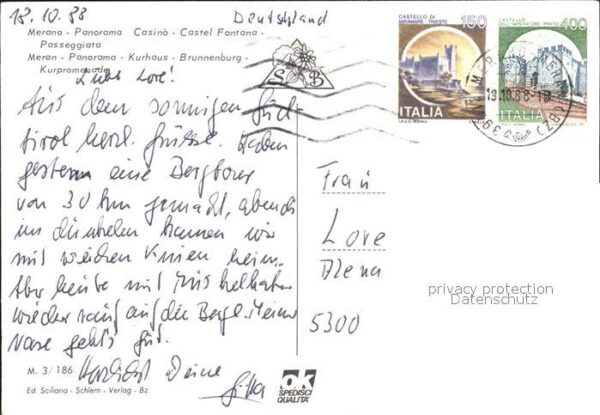 18.10.83
Deutschland
Merano - Panorama Casinò - Castel Fontana -
Passeggiata
Meran - Panorama - Kurhaus - Brunnenburg -
Kurpromenade
Liebe Lore!
Aus dem sonnigen Süd-
tirol herzl. Grüsse. Haben
gestern eine Bergtour
von 30 km gemacht, abends
im dunkeln kamen wir
mit weichen Knien heim.
Aber heute mit
wieder rauf auf die Berge. Meiner
Nase geht's gut.
Herzlichst Deine
Gitta
M. 3/186
Ed. Sciliana - Schlern - Verlag - Bz
ok
SPEDISCI
QUALITÀ
S B
CASTELLO DI
MIRAMARE - TRIESTE
150
ITALIA
CASTELLO
DELL'IMPERATORE - PRATO
400
ITALIA
Frau
Lore
Alena
5300
privacy protection
Datenschutz